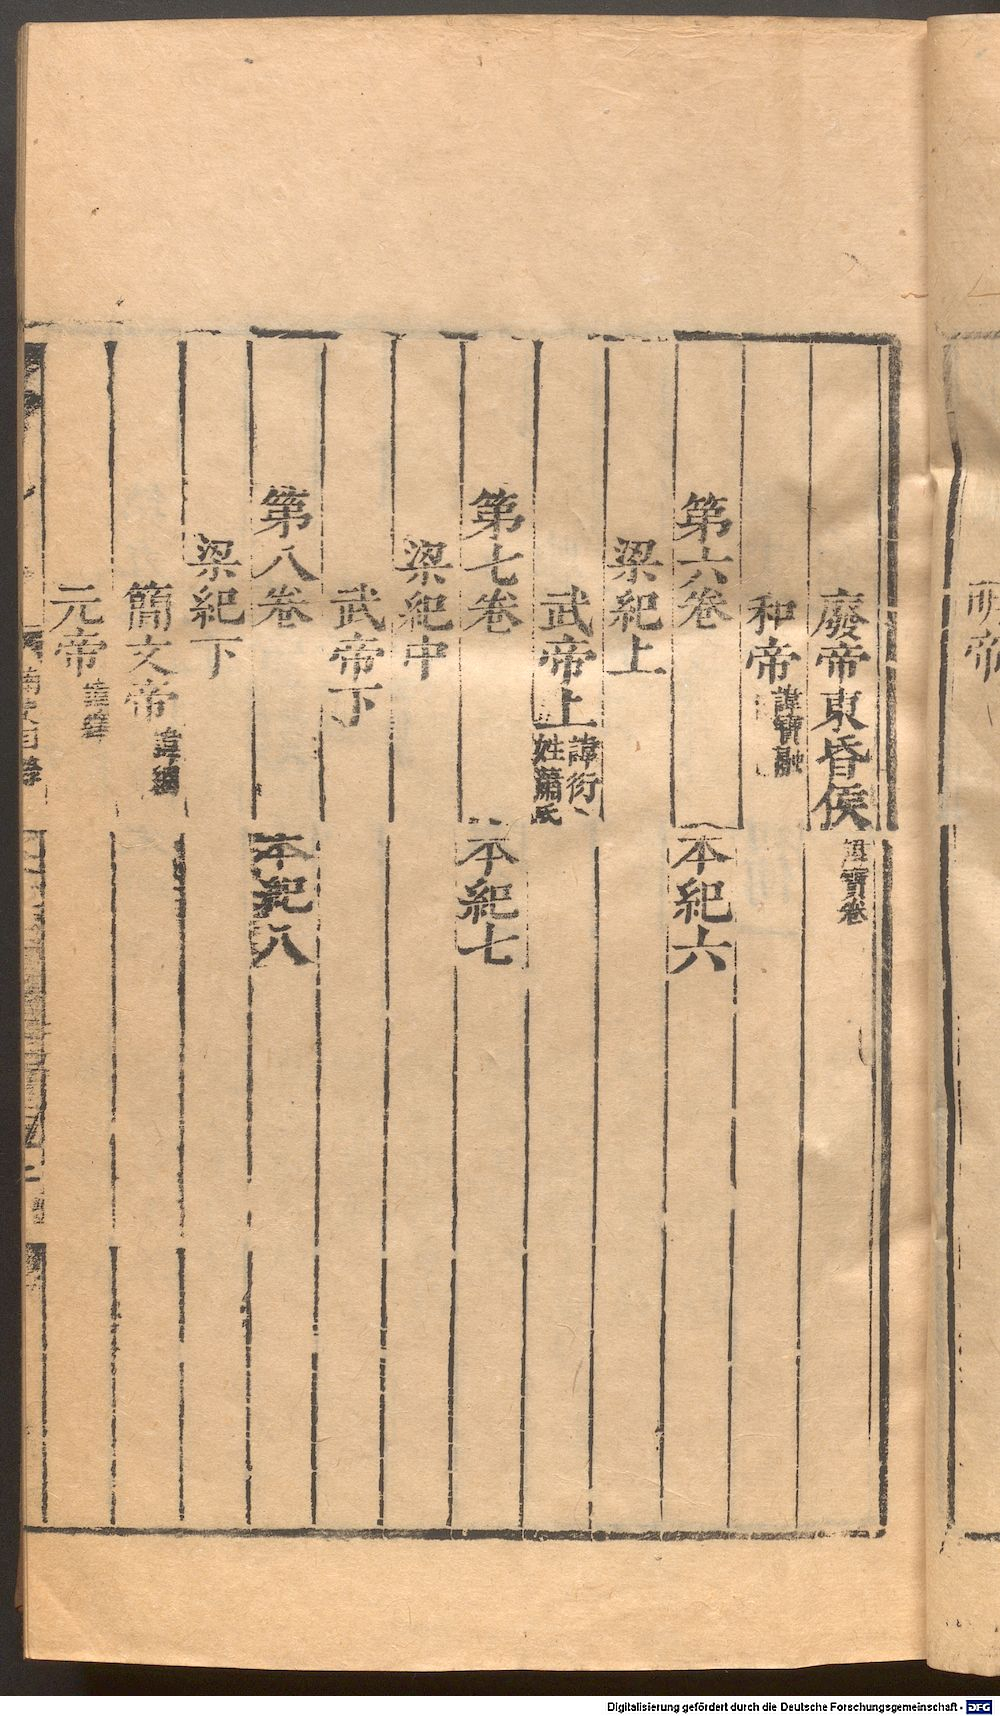 明帝
廢帝東昏侯 諱寶卷
和帝 諱寶融
第六卷 本紀六
梁紀上
武帝上 諱衍姓蕭氏
第七卷 本紀七
梁紀中
武帝下
第八卷 本紀八
梁紀下
簡文帝 諱綱
元帝 諱繹
南史目錄
Digitalisierung gefördert durch die Deutsche Forschungsgemeinschaft - DFG